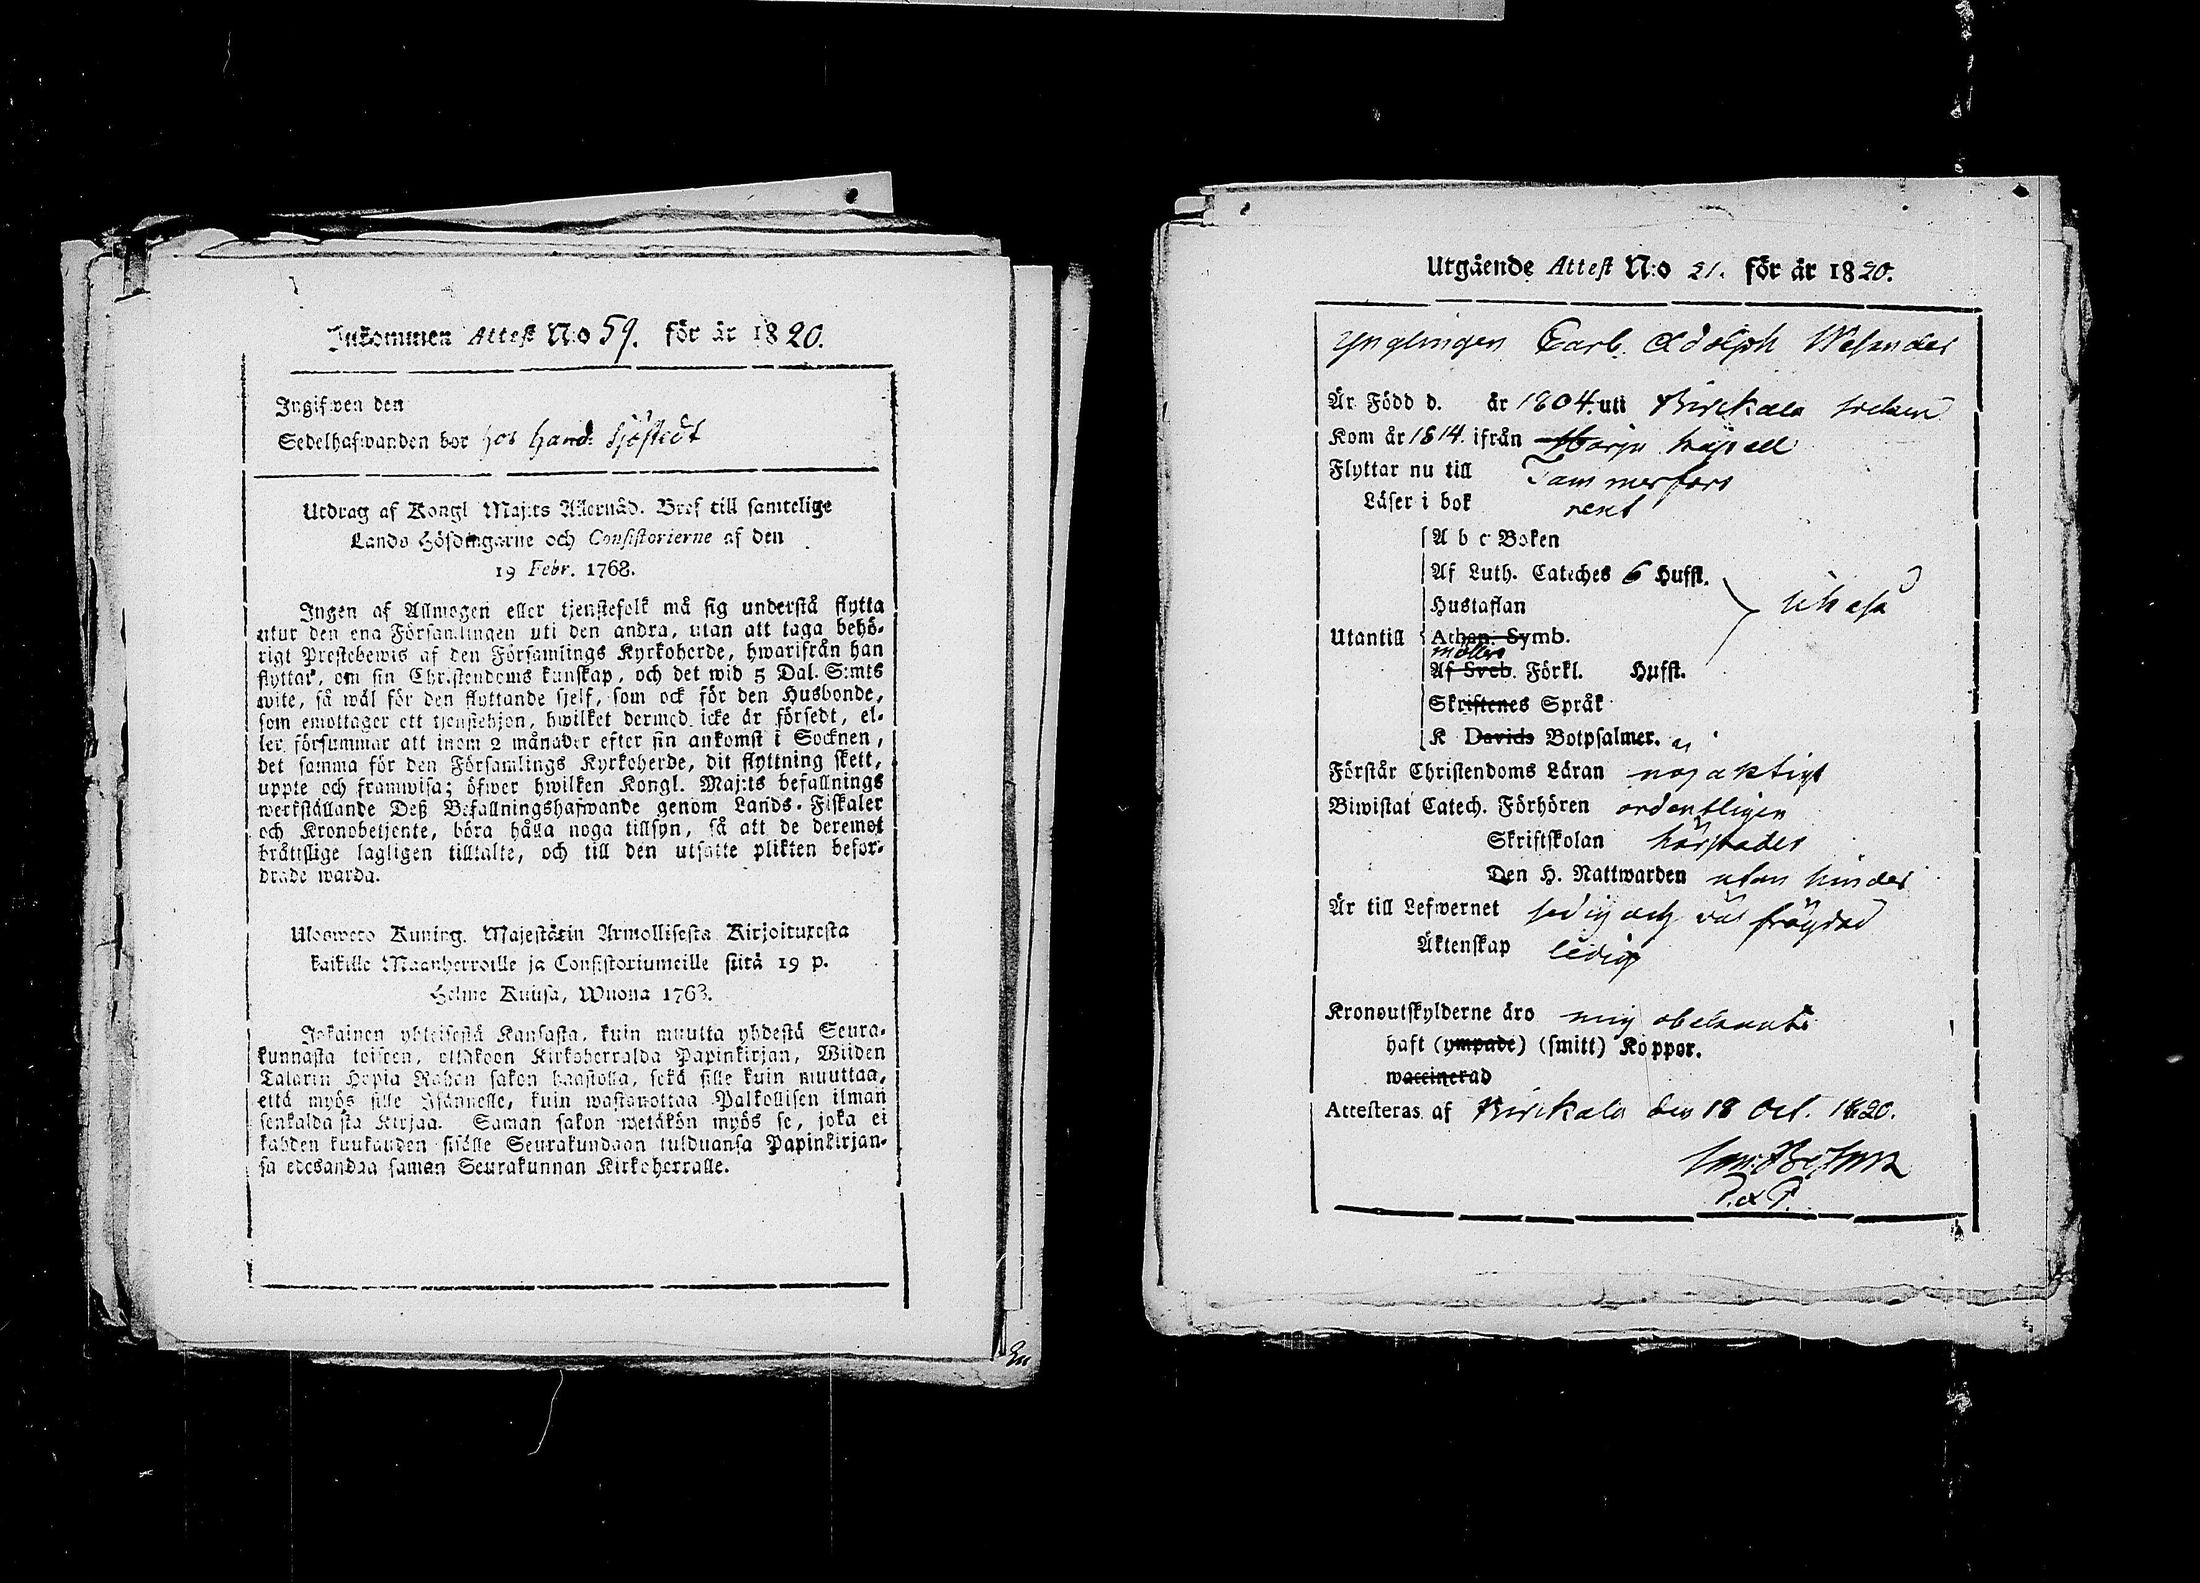 Inkommen Attest N:o 59. för år 1820.
Ingifwen den
Sedelhafwanden bor hos Hand: Sjöstedt
Utdrag af Kongl Maj:ts Allernåd. Bref till samtelige
Lands Höfdingarne och Consistorierne af den
19 Febr. 1768.
Ingen af Allmogen eller tjenstefolk må sig understå flytta
utur den ena Församlingen uti den andra, utan att taga behö-
rigt Prestebewis af den Församlings Kyrkoherde, hwarifrån han
flyttar, om sin Christendoms kunskap, och det wid 5 Dal. S:mts
wite, så wäl för den flyttande sjelf, som ock för den Husbonde,
som emottager ett tjenstehjon, hwilket dermed icke är försedt, el-
ler försummar att inom 2 månader efter sin ankomst i Socknen,
det samma för den Församlings Kyrkoherde, dit flyttning skett,
uppte och framwisa; öfwer hwilken Kongl. Maj:ts befallnings
werkställande Deß Befallningshafwande genom Lands-Fiskaler
och Kronobetjente, böra hålla noga tillsyn, så att de deremot
bråttslige lagligen tilltalte, och till den utsatte plikten befor-
drade warda.
Ulosweto Kuning. Majestätin Armollisesta Kirjoituxesta
kaikille Maanherroille ja Consistoriumeille siitä 19 p.
Helme Kuusa, Wuona 1768.
Jokainen yhteisestä Kansasta, kuin muutta yhdestä Seura-
kunnasta toiseen, ottakoon Kirkoherralda Papinkirjan, Wiiden
Talarin Hopia Rahan sakon haastolla, sekä sille kuin muuttaa,
että myös sille Isännelle, kuin wastanottaa Palkollisen ilman
senkaldaista Kirjaa. Saman sakon wetäkön myös se, joka ei
kahden kuukauden sisälle Seurakundaan tulduansa Papinkirjan-
sa edesandaa saman Seurakunnan Kirkoherralle.
Utgående Attest N:o 21. för år 1820.
Ynglingen Carl Adolph Welander
Är Född d. år 1804. uti Birkala socken
Kom år 1814. ifrån Harju kapell
Flyttar nu till Tammerfors
Läser i bok rent
A b c Boken
Af Luth. Cateches 6 Hufst.
Hustaflan
Utantill Athan. Symb.
möllers
Af Sveb. Förkl. Hufst.
Skriftenes Språk
K Davids Botpsalmer. ej
Förstår Christendoms Läran nojaktigt
Biwistat Catech. Förhören ordentligen
Skriftskolan härstädes
Den H. Nattwarden utan hinder
Är till Lefwernet sedig och väl frägdad
Äktenskap ledig
Kronoutskylderne äro mig obekante
haft (ympade) (smitt) Koppor.
waccinerad
Attesteras af Birkala den 18 Oct. 1820.